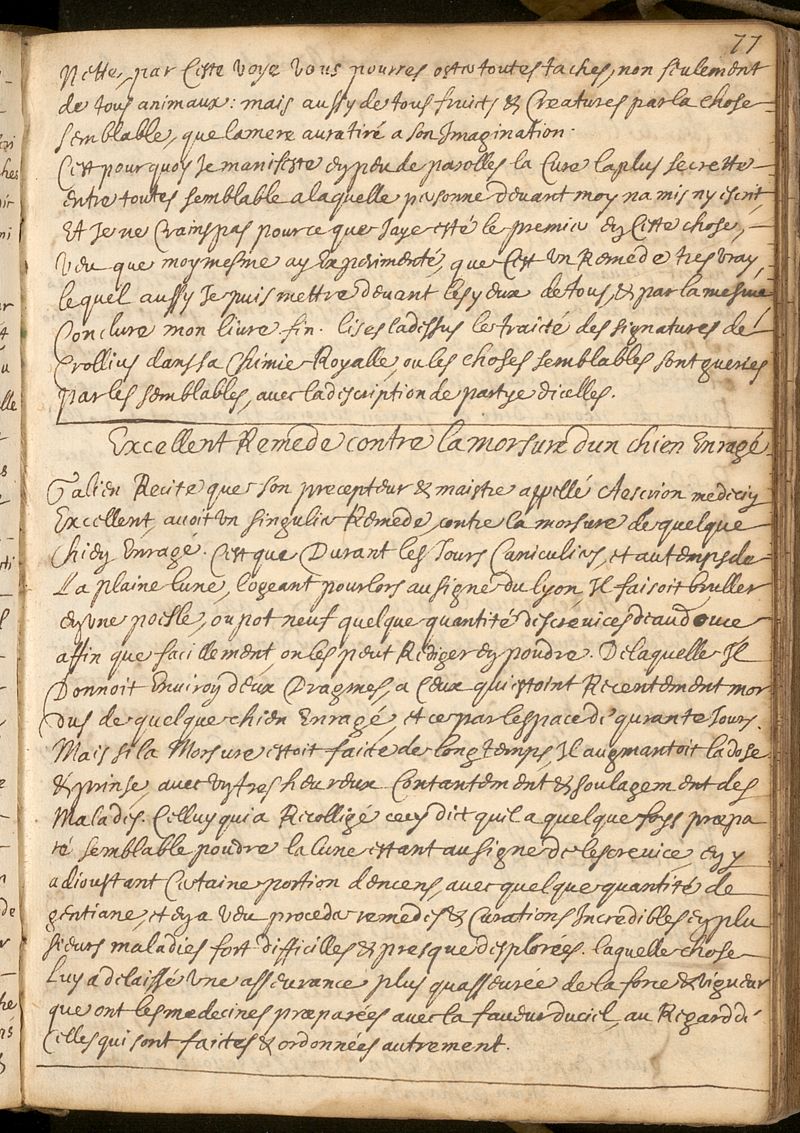 77
Nette, par Ceste voye vous pourres oster toutes taches, non seulement
de tous animaux: mais aussy de tous fruicts & Creatures par la chose
semblable, que la mere aura tiré a son Imagination.
C'est pourquoy Je manifeste en peu de parolles la Cure la plus secrette
entre toutes semblable a laquelle personne devant moy na mis ny escrit,
Et Je ne Crains pas pource que Jaye esté le premier en Ceste chose,
veu que moymesme ay Experimenté, que C'est un Remede tres vray,
lequel aussy Je puis mettre devant les yeux de tous, & par la mesme
Conclure mon livre fin. lises la dessus le traicté des signatures de
Crollius dans sa Chimie Royalle, ou les choses semblables sont gueries
par les semblables, avec la description de partye dicelles.
Excellent Remede contre la morsure dun chien Enragé
Galien Recite que son precepteur & maistre appellé Aescrion medecin
Excellent, avoit un singulier Remede, contre la morsure de quelque
Chien Enragé. C'est que Durant les Jours Caniculiers, et au temps de
La plaine lune, logeant pour lors au signe du lyon, Il faisoit bruller
en une poesle, ou pot neuf quelque quantité descrevices deau douce
affin que facillement, on les peut Rediger en poudre. De laquelle Il
Donnoit Environ deux Dragmes, a Ceux qui estoint Recentement mor
dus de quelque chien Enragé, et ce par lespace de qurante Jours.
Mais si la Morsure estoit faite de long temps, Il augmantoit la dose
& prinse, avec un tres heureux Contantement & soulagement des
Malades. Celluy qui a Recolligé cecy dict quil a quelque foys præpa
ré semblable poudre la lune estant au signe de lescrevice, en y
adioustant Certaine portion dencens, avec quelque quantité de
gentiane, et en a veu proceder remedes & Curations Incredibles en plu
sieurs maladies fort difficilles & presque desplorées. laquelle chose
Luy a delaissé une asseurance plus quasseurée de la force & vigueur
que ont les medecines præparées avec la faveur du ciel, au Regard di
Celles qui sont faictes & ordonnées autrement.